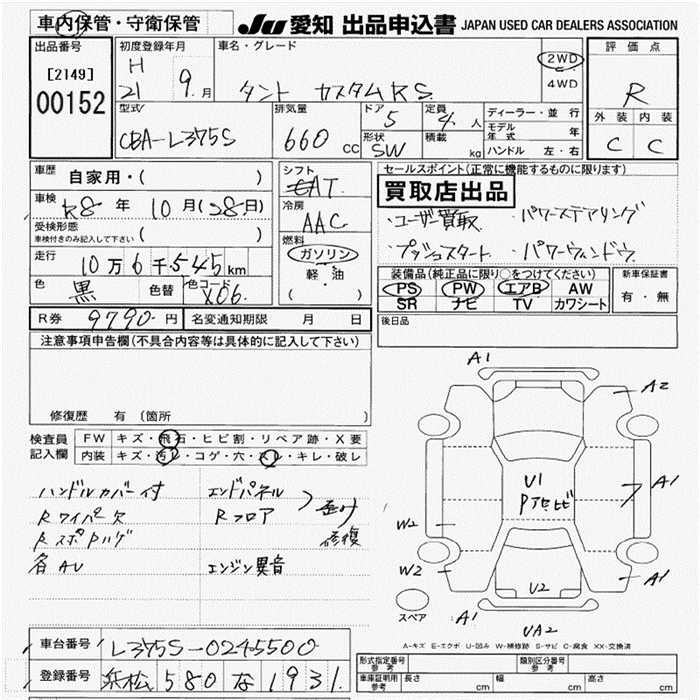 車内保管・守衛保管
JU 愛知 出品申込書 JAPAN USED CAR DEALERS ASSOCIATION
出品番号
[2149]
00152
初度登録年月
H
21 9 月
車名・グレード
タント カスタムRS
2WD
4WD
評価点
R
外装 内装
C C
型式
CBA-L375S
排気量
660 cc
ドア
5
形状
SW
定員
4 人
積載
kg
ディーラー・並行
モデル年式 年
ハンドル 左・右
車歴 自家用・( )
車検 R8 年 10 月(28日)
受検形態
車検付きのみ記入して下さい ( )
走行 10万6千545km
色 黒 色替 色コード X06
シフト
AT
冷房
AAC
燃料
ガソリン
軽・油
( )
セールスポイント(正常に機能するものに限ります)
買取店出品
・ユーザー買取 ・パワーステアリング
・プッシュスタート ・パワーウィンドウ
装備品(純正品に限り○をつけてください)
PS PW エアB AW
SR ナビ TV カワシート
新車保証書
有・無
R券 9790 円 名変通知期限 月 日
後日品
注意事項申告欄(不具合内容等は具体的に記入して下さい)
修復歴 有 (箇所 )
検査員記入欄
FW キズ・飛石・ヒビ割・リペア跡・X要
内装 キズ・汚レ・コゲ・穴・スレ・キレ・破レ
ハンドルカバー付 エンドパネル
Rワイパー欠 Rフロア
歪み
修復
RスポPハゲ
各AU エンジン異音
A1
A2
U1
Pガヒビ
A1
W2
W2
A1
U2
スペア
A1
UA2
A-キズ E-エクボ U-凹み W-補修跡 S-サビ C-腐食 XX-交換済
車台番号 L375S-0245500
登録番号 浜松 580 な 1931
形式指定番号
参考
類別区分番号
参考
車庫証明用
参考
長さ cm 幅 cm 高さ cm